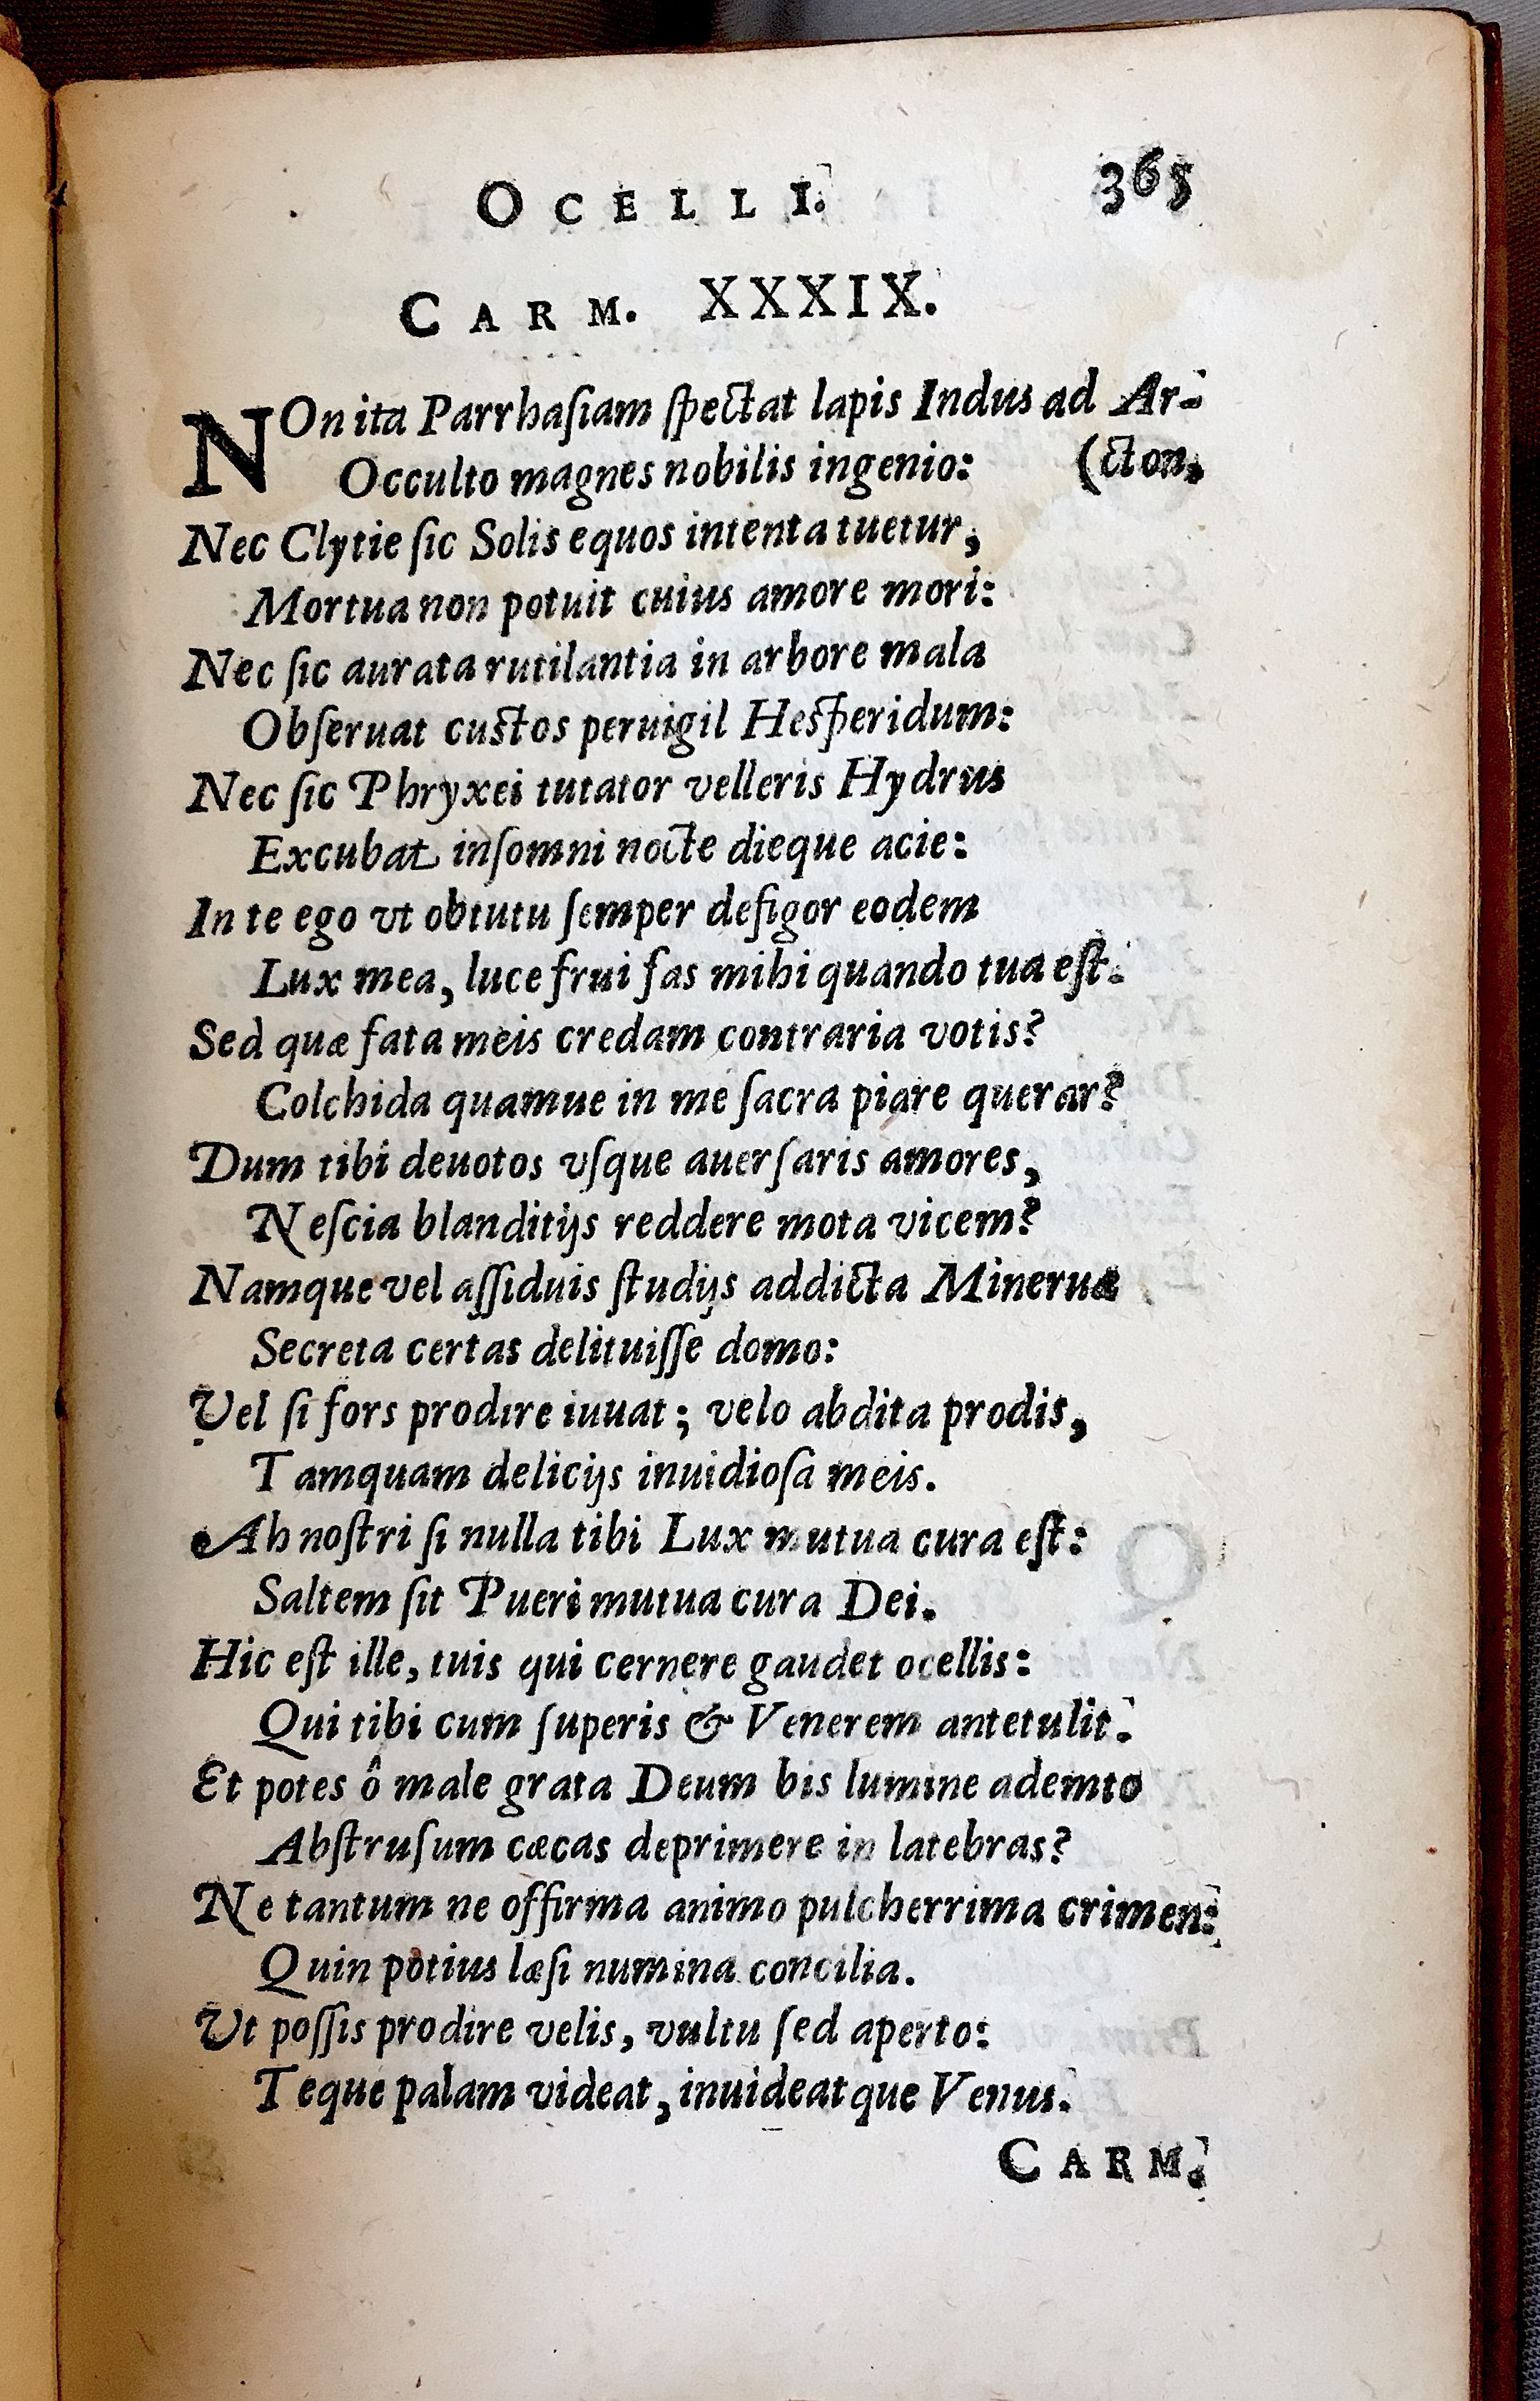 OCELLI. 365
CARM. XXXIX.
NOn ita Parrhaſiam ſpectat lapis Indus ad Ar-
Occulto magnes nobilis ingenio: (cton,
Nec Clytie ſic Solis equos intenta tuetur,
Mortua non potuit cuius amore mori:
Nec ſic aurata rutilantia in arbore mala
Obſeruat custos peruigil Hesperidum:
Nec ſic Phryxei tutator velleris Hydrus
Excubat inſomni nocte dieque acie:
In te ego vt obtutu ſemper defigor eodem
Lux mea, luce frui fas mihi quando tua eſt.
Sed quæ fata meis credam contraria votis?
Colchida quamue in me ſacra piare querar?
Dum tibi deuotos vſque auerſaris amores,
Neſcia blanditijs reddere mota vicem?
Namque vel aſſiduis ſtudijs addicta Mineruæ
Secreta certas delituiſſe domo:
Vel ſi fors prodire iuuat; velo abdita prodis,
Tamquam delicijs inuidioſa meis.
Ah noſtri ſi nulla tibi Lux mutua cura eſt:
Saltem ſit Pueri mutua cura Dei.
Hic eſt ille, tuis qui cernere gaudet ocellis:
Qui tibi cum ſuperis & Venerem antetulit.
Et potes ô male grata Deum bis lumine ademto
Abſtruſum cæcas deprimere in latebras?
Ne tantum ne offirma animo pulcherrima crimen:
Quin potius læſi numina concilia.
Vt poſſis prodire velis, vultu ſed aperto:
Teque palam videat, inuideatque Venus.
CARM.